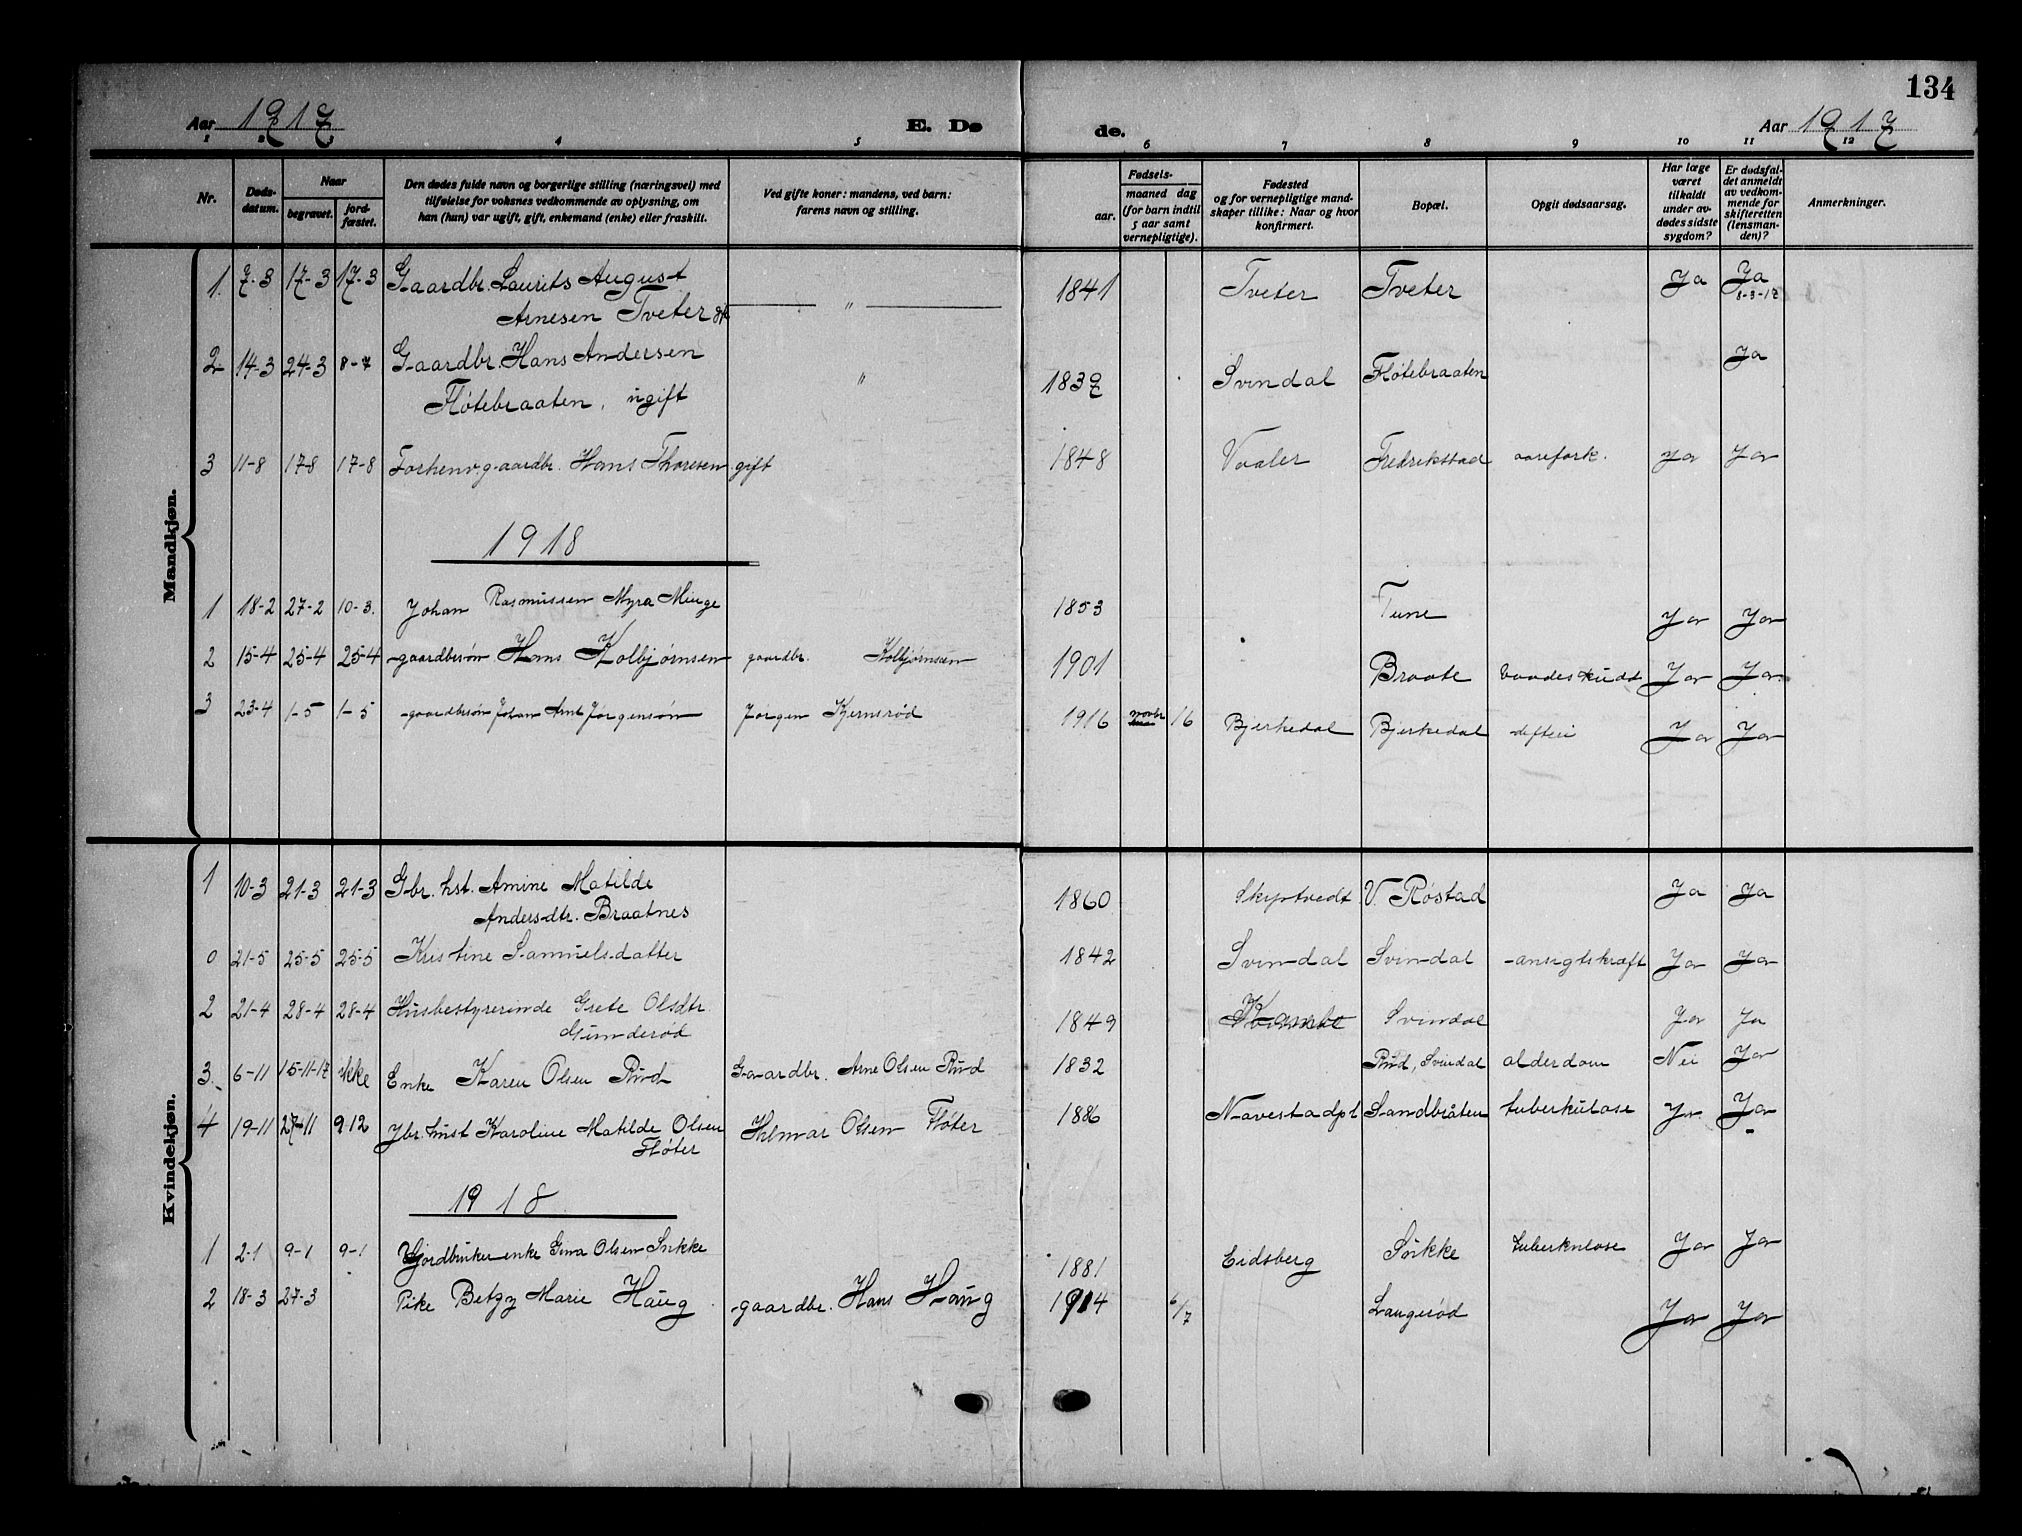 134
Aar 1917 E. Dø de. Aar 1917
1 2 3 4 5 6 7 8 9 10 11 12
Nr.
Døds-
datum.
Naar
begravet.
jord-
fæstet.
Den dødes fulde navn og borgerlige stilling (næringsvei) med
tilføielse for voksnes vedkommende av oplysning, om
han (hun) var ugift, gift, enkemand (enke) eller fraskilt.
Ved gifte koner: mandens, ved barn:
farens navn og stilling.
Fødsels-
aar.
maaned dag
(for barn indtil
5 aar samt
vernepligtige).
Fødested
og for vernepligtige mand-
skaper tillike: Naar og hvor
konfirmert.
Bopæl.
Opgit dødsaarsag.
Har læge
været
tilkaldt
under av-
dødes sidste
sygdom?
Er dødsfal-
det anmeldt
av vedkom-
mende for
skifteretten
(lensman-
den)?
Anmerkninger.
Mandkjøn.
1. 7-3 17-3 17-3 Gaardbr. Laurits August — " — 1841 Tveter Tveter Ja Ja
Arnesen Tveter 8-3-17
2 14-3 24-3 8-7 Gaardbr. Hans Andersen " 1839 Svindal Fløtebraaten Ja
Fløtebraaten, ugift
3 11-8 17-8 17-8 Forhenv. gaardbr. Hans Thoresen gift 1848 Vaaler Fredrikstad aarefork. Ja Ja
1918
1 18-2 27-2 10-3. Johan Rasmussen Myra Minge 1853 Tune Ja Ja
2 15-4 25-4 25-4 gaardbrsøn Hans Kolbjørnsen gaardbr. Kolbjørnsen 1901 Braate vaadeskudt Ja Ja
3 23-4 1-5 1-5 gaardbrsøn Johan Arnt Jørgensøn Jørgen Kjernsrød 1916 novbr 16 Bjerkedal Bjerkedal difteri Ja Ja
Kvindekjøn.
1 10-3 21-3 21-3 Gbr. hst. Amine Matilde 1860 Skiptvedt V. Røstad Ja Ja
Andersdtr. Braatnes
0 21-5 25-5 25-5 Kristine Samuelsdatter 1842 Svindal Svindal ansigtskræft Ja Ja
2 21-4 28-4 28-4 Husbestyrerinde Grete Olsdtr. 1849 Svindal Ja Ja
Gunderød
3. 6-11 15-11-17 ikke Enke Karen Olsen Rud Gaardbr. Arne Olsen Rud 1832 Rud, Svindal alderdom Nei Ja
4 19-11 27-11 9 12 Jbr. hust Karoline Matilde Olsen Hilmar Olsen Fløter 1886 Navestadpl Sandbråten tuberkulose Ja Ja
Fløter
1918
1 2-1 9-1 9-1 Gjordbruker enke Gina Olsen, Sukke 1881 Eidsberg Sukke tuberkulose Ja Ja
2 18-3 27-3 Pike Betzy Marie Haug gaardbr. Hans Haug 1914 6/7 Langerød Ja Ja